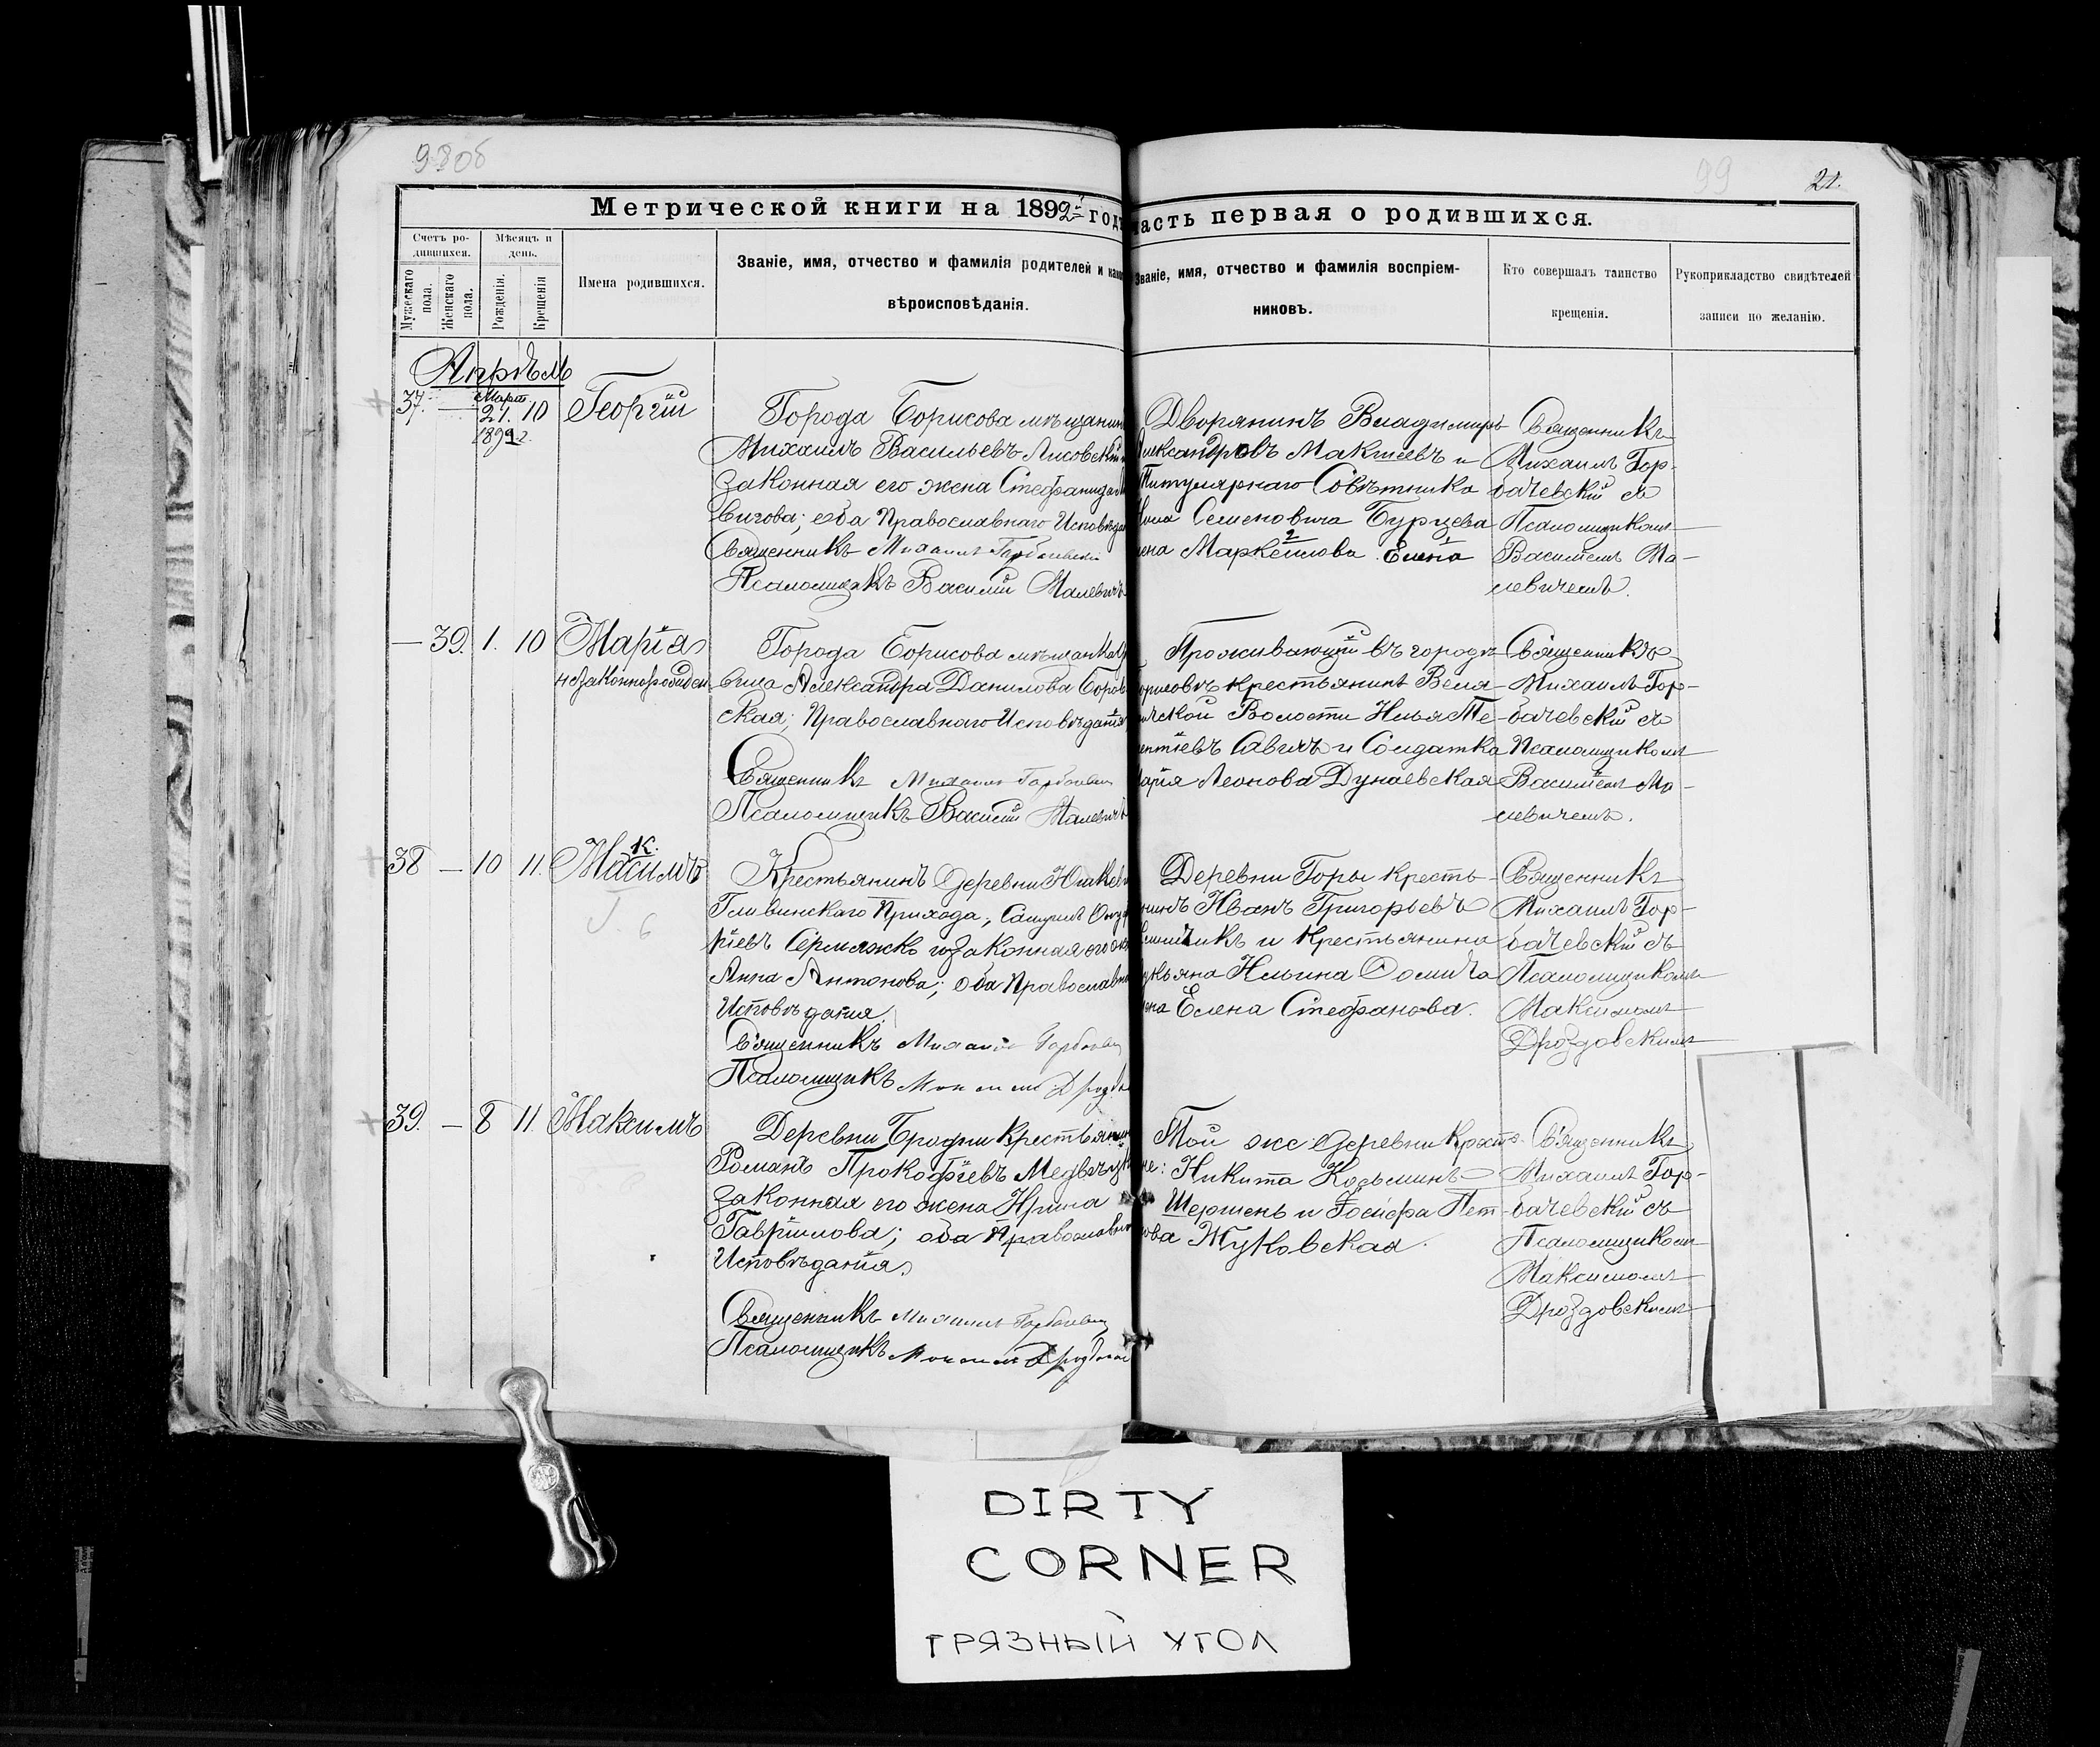 98об
99
21.
Метрической книги на 1892й годъ
часть первая о родившихся.
Счетъ ро-
дившихся.
Мужескаго пола.
Женскаго пола.
Мѣсяцъ и
день.
Рожденія.
Крещенія
Имена родившихся.
Званіе, имя, отчество и фамилія родителей и како
вѣроисповѣданія.
Званіе, имя, отчество и фамилія воспріем-
никовъ.
Кто совершалъ таинство
крещенія.
Рукоприкладство свидѣтелей
записи по желанію.
Апрѣль
37. — Март. 21. 1892. 10 Георгій
Города Борисова мѣщанин
Михаилъ Васильевъ Лисовскій
законная его жена Стефанида
вигова; оба Православнаго Исповѣда
Священникъ Михаилъ Горбачевскій
Псаломщикъ Василій Малевичъ
Дворянинъ Владимиръ
Александровъ Макшеевъ и
Титулярнаго Совѣтника
Семеновича Бурцева
жена Маркеллова 2 Елена 1
Священникъ
Михаилъ Гор-
бачевскій съ
Псаломщикомъ
Василіемъ Ма-
левичемъ.
— 39. 1. 10 Марія
незаконнорожден
Города Борисова мѣщанка
вица Александра Данилова Боров
ская; Православнаго Исповѣданія
Священникъ Михаилъ Горбачевск
Псаломщикъ Василій Малевичъ
Проживающій въ городѣ
Борисовѣ крестьянинъ Веля-
ческой Волости Илья Те-
рентіевъ Савичъ и Солдатка
Марія Леонова Дунаевская
Священникъ
Михаилъ Гор-
бачевскій съ
Псаломщикомъ
Василіемъ Ма-
левичемъ.
38 — 10 11. Масимъ
к.
Крестьянинъ Деревни Юшкев
Гливинскаго Прихода, Самуилъ Онуф
ріевъ Сермяжко и законная его же
Анна Антонова; оба Православна
Исповѣданія.
Священникъ Михаилъ Горбачевск
Псаломщикъ Максимъ Дрозд
Деревни Горы Кресть-
янинъ Иванъ Григорьевъ
и Крестьянина
Лукьяна Ильина
жена Елена Стефанова.
Священникъ
Михаилъ Гор-
бачевскій съ
Псаломщикомъ
Максимомъ
Дроздовскимъ
39. — 8 11. Максимъ
Деревни Бродни Крестьянин
Романъ Прокофіевъ Медвѣц
законная его жена Ирина
Гавріилова; оба Православна
Исповѣданія,
Священникъ Михаилъ Горбачевск
Псаломщикъ Максимъ Дроздовс
Той же деревни Крест
не: Никита Козьминъ
Шершень и Іосифа Пет
рова Жуковская.
Священникъ
Михаилъ Гор-
бачевскій съ
Псаломщикомъ
Максимомъ
Дроздовскимъ
DIRTY
CORNER
ГРЯЗНЫЙ УГОЛ